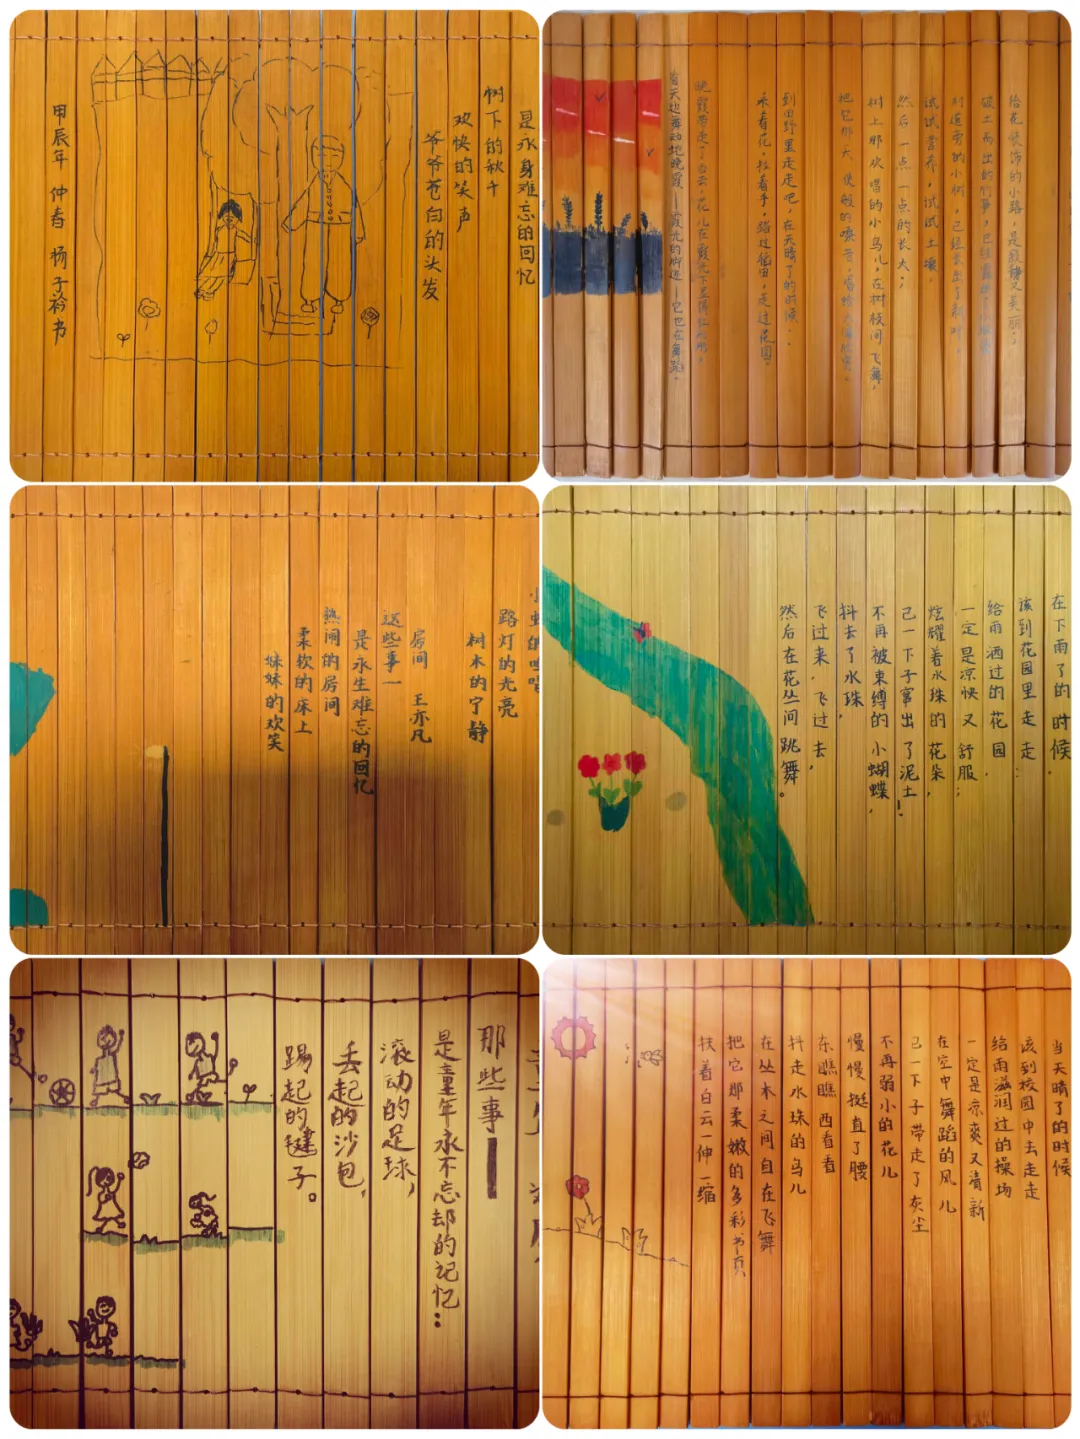 是永身难忘的回忆
树下的秋千
欢快的笑声
爷爷苍白的头发
甲辰年 仲春 杨子衿书
给花装饰的小路,是寂静又美丽;
破土而出的竹笋,已经
村道旁的小树,已经长出了新叶,
试试营养,试试土壤,
然后一点一点的长大;
树上那欢唱的小鸟儿,在树枝间飞舞,
把它那天使般的嗓音,唱给
到田野里走走吧,在天晴了的时候.
来看花,拉着手,踏过稻田,走过花园.
晚霞带走了白云,花儿在霞光下显得
首天边舞动地晚霞——霞光的脚迹——它也在舞蹈.
路灯的光亮
树木的宁静
房间 王亦凡
这些事一
是永生难忘的回忆
热闹的房间
柔软的床上
妹妹的欢笑
在下雨了的时候.
该到花园里走走:
给雨洒过的花园.
一定是凉快又舒服;
炫耀着水珠的花朵,
已一下子窜出了泥土!
不再被束缚的小蝴蝶,
抖去了水珠,
飞过来,飞过去,
然后在花丛间跳舞。
那些事——
是童年永不忘却的记忆:
滚动的足球,
丢起的沙包,
踢起的毽子。
当天晴了的时候
该到校园中去走走
给雨滋润过的操场
一定是凉爽又清新
在空中舞蹈的风儿
已一下子带走了灰尘
不再弱小的花儿
慢慢挺直了腰
东瞧瞧西看看
抖走水珠的鸟儿
在丛木之间自在飞舞
把它那柔嫩的多彩书页
扶着白云一伸一缩